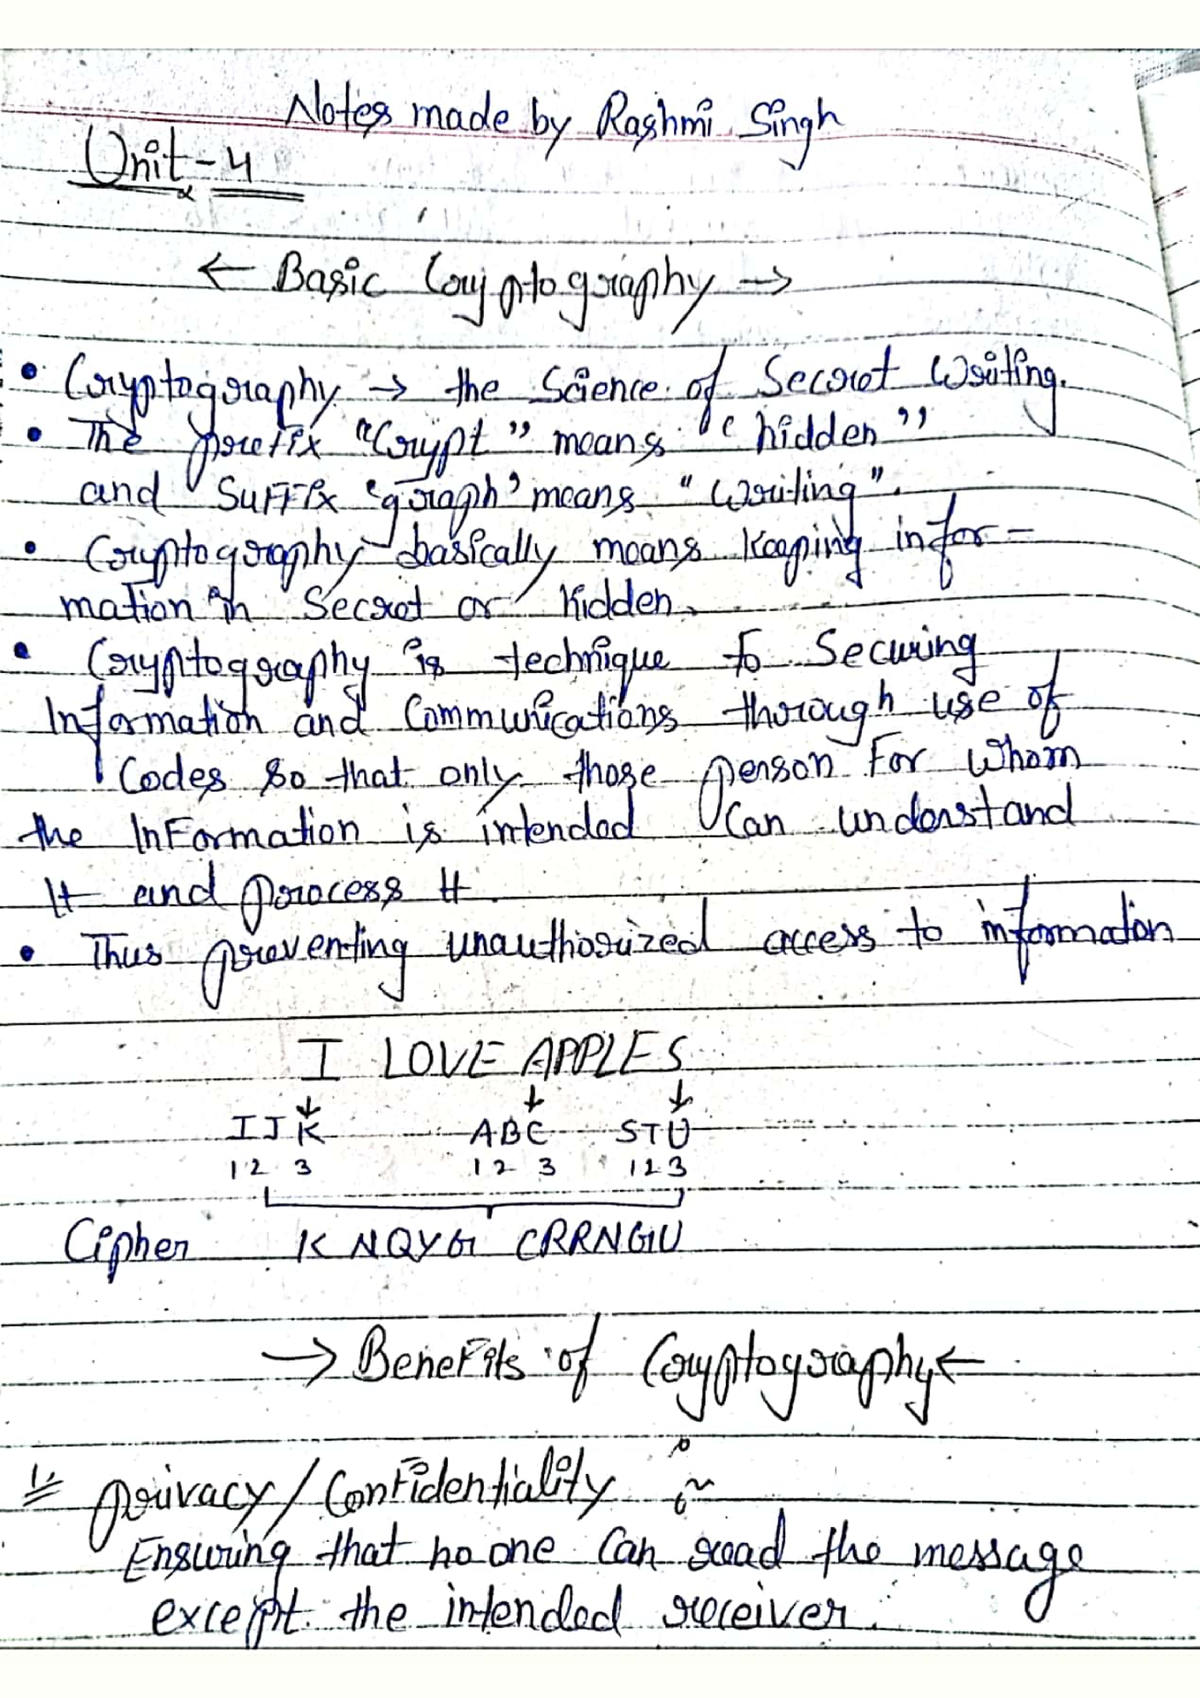 Notes made by Rashmi Singh
Unit-4
← Basic Cryptography →
• Cryptography → the Science of Secret Writing.
• The prefix "Crypt" means "hidden"
and Suffix 'graph' means "Writing".
• Cryptography basically means keeping infor-
mation in Secret or hidden.
• Cryptography is technique to Securing
Information and Communications through use of
Codes so that only those person For whom
the InFormation is intended Can understand
It and process It.
• Thus preventing unauthorized access to informaton
I LOVE APPLES
↓ ↓ ↓
I J K A B C S T U
1 2 3 1 2 3 1 2 3
Cipher K NQYG CRRNGU
→ Benefits of Cryptography ←
1. privacy/Confidentiality :~
Ensuring that no one Can read the message
except the intended receiver.